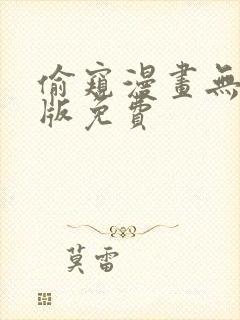 偷窺漫畫無
版免費
莫雷